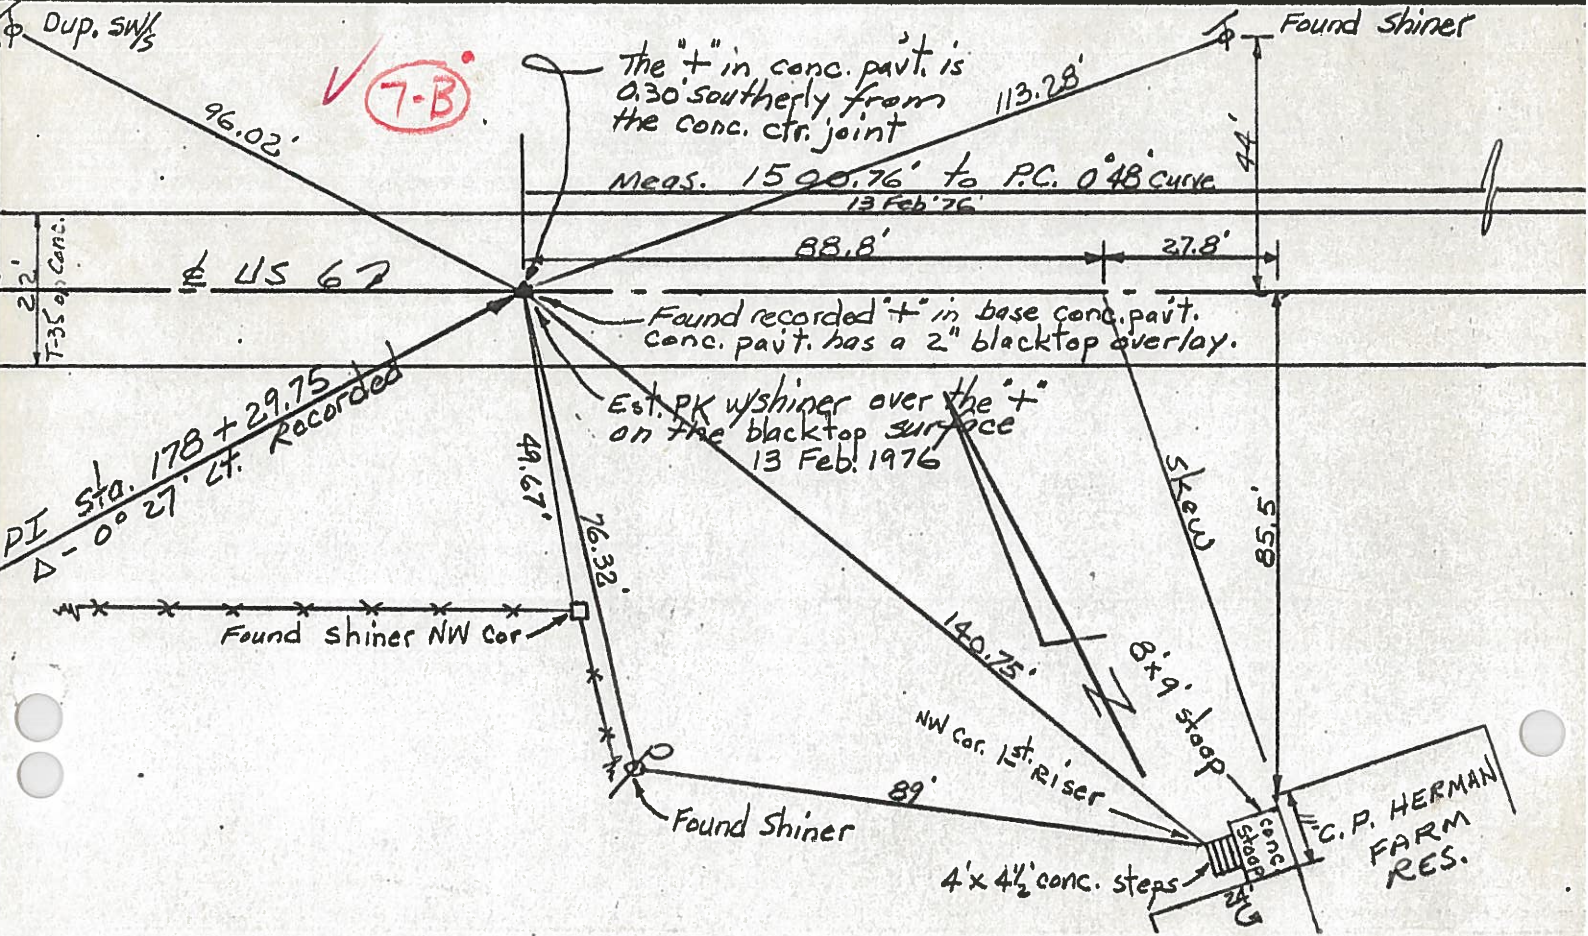 Dup. SW/s
Found Shiner
7-B
The "+" in conc. pav't. is
0.30' southerly from
the conc. ctr. joint
96.02'
113.28'
44'
Meas. 1500.76' to P.C. 0°48' curve
13 Feb '76
88.8'
27.8'
22'
T-35 op Conc.
℄ US 67
Found recorded "+" in base conc. pav't.
Conc. pav't. has a 2" blacktop overlay.
Est. PK w/shiner over the "+"
on the blacktop surface
13 Feb. 1976
PI Sta. 178 + 29.75
Δ - 0° 27' Lt. Recorded
49.67'
76.32'
Skew
85.5'
Found Shiner NW Cor
140.75'
N
8'x9' stoop
NW Cor. 1st. Riser
89'
Found Shiner
4'x 4½' conc. steps
conc
stoop
11'
24'
C. P. HERMAN
FARM
RES.